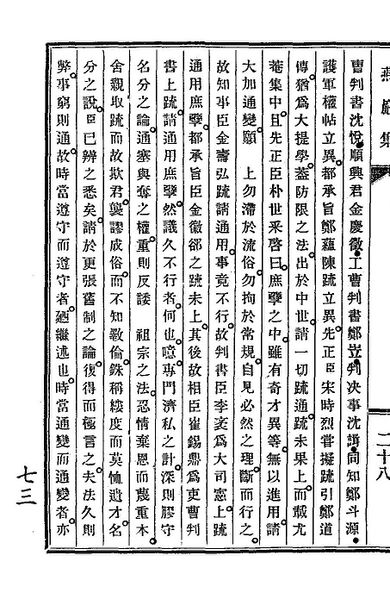 燕巖集
二十八
曹判書沈悅順興君金慶徵工曹判書鄭岦判决事沈諿同知鄭斗源
護軍權帖立異都承旨鄭蘊陳疏立異先正臣宋時烈甞擬疏引鄭道
傳猶爲大提學蓋防限之法出於中世請一切疏通疏未果上而載尤
菴集中且先正臣朴世采啓曰庶孽之中雖有奇才異等無以進用請
大加通變願 上勿滯於流俗勿拘於常規自見必然之理斷而行之
故知事臣金壽弘疏請通用事竟不行故判書臣李袤爲大司憲上疏
通用庶孽都承旨臣金徽郤之疏未上其後故相臣崔錫鼎爲吏曹判
書上疏請通用庶孽然議久不行者何也噫專門濟私之計深則膠守
名分之論通塞與奪之權重則反諉 祖宗之法忍情棄恩而蔑重本
舍親取疏而故欺君襲謬成俗而不知斁倫銖稱縷度而莫恤遺才名
分之說臣已辨之悉矣請於更張舊制之論復得而極言之夫法久則
弊事窮則通故時當遵守而遵守者廼繼述也時當通變而通變者亦
七三